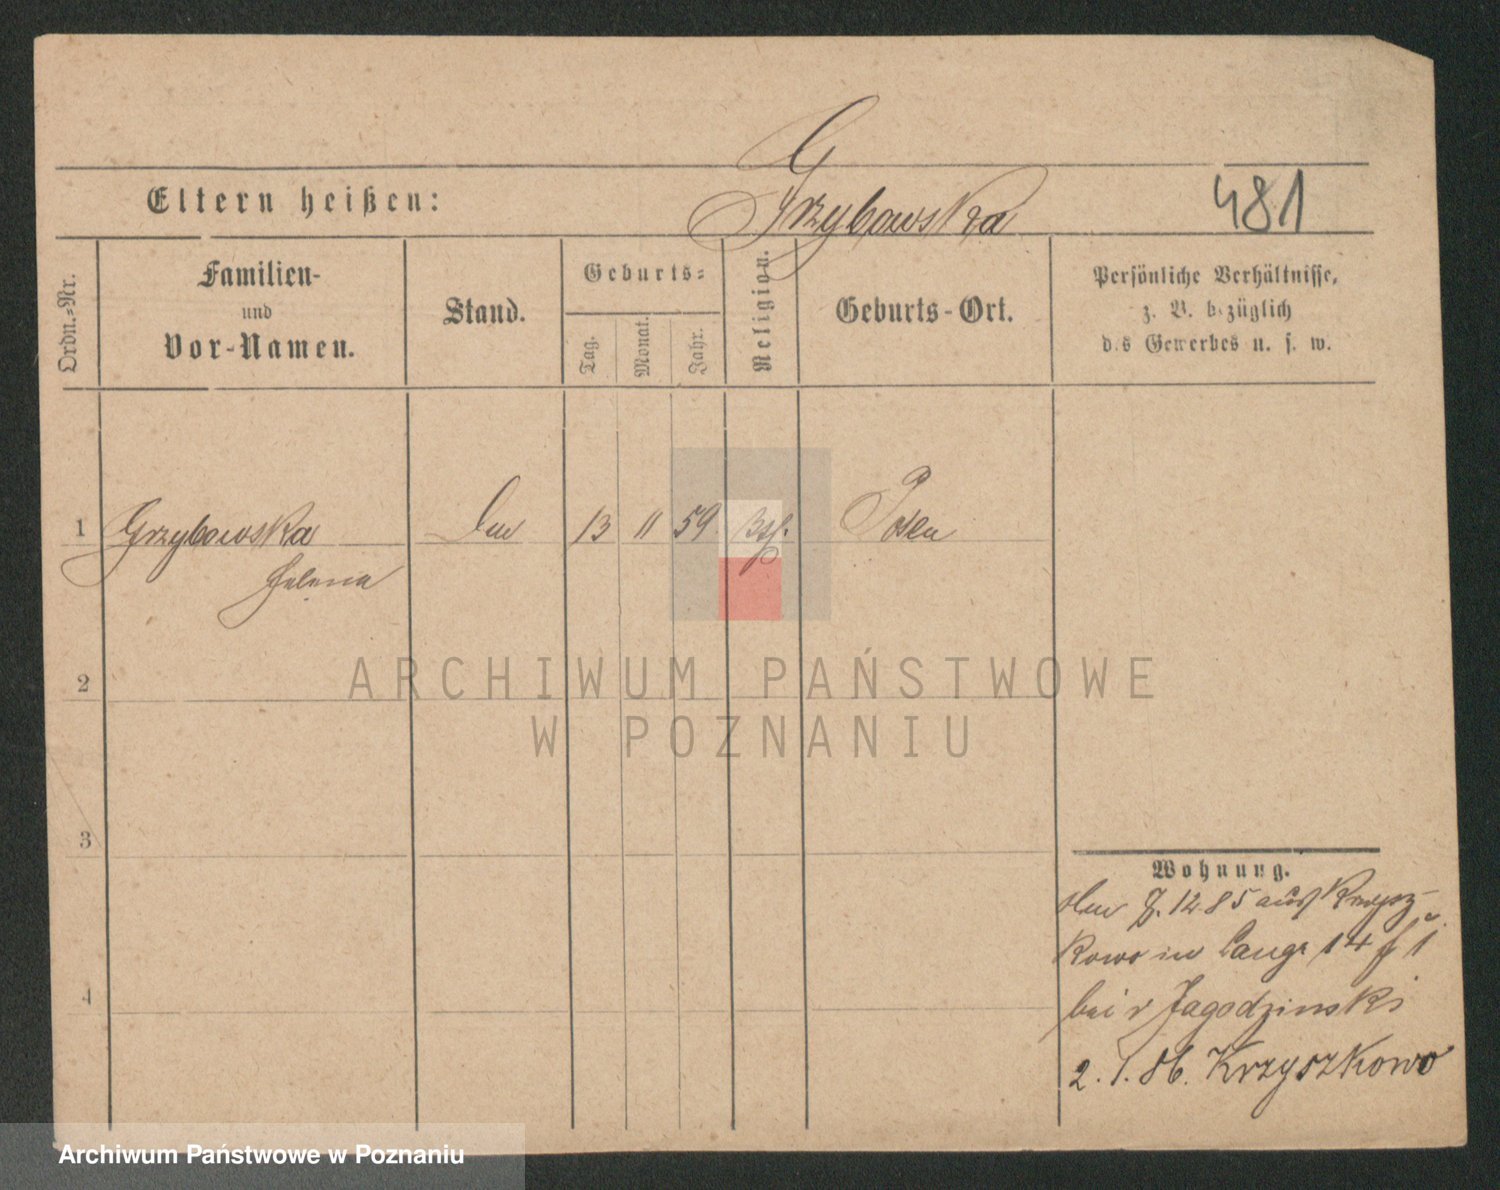 Grzybowska
481
Eltern heißen:
Ordn.=Nr.
Familien-
und
Vor-Namen.
Stand.
Geburts=
Tag.
Monat.
Jahr.
Religion.
Geburts-Ort.
Persönliche Verhältnisse,
z. B. bezüglich
des Gewerbes u. s. w.
1 Grzybowska 13 11 59 Posen
Helena
2
3
4
Wohnung.
12.85 aus Krzysz-
kowo in Lange 14
bei v Jagodzinski
2.1.86. Krzyszkowo
ARCHIWUM PAŃSTWOWE
W POZNANIU
Archiwum Państwowe w Poznaniu